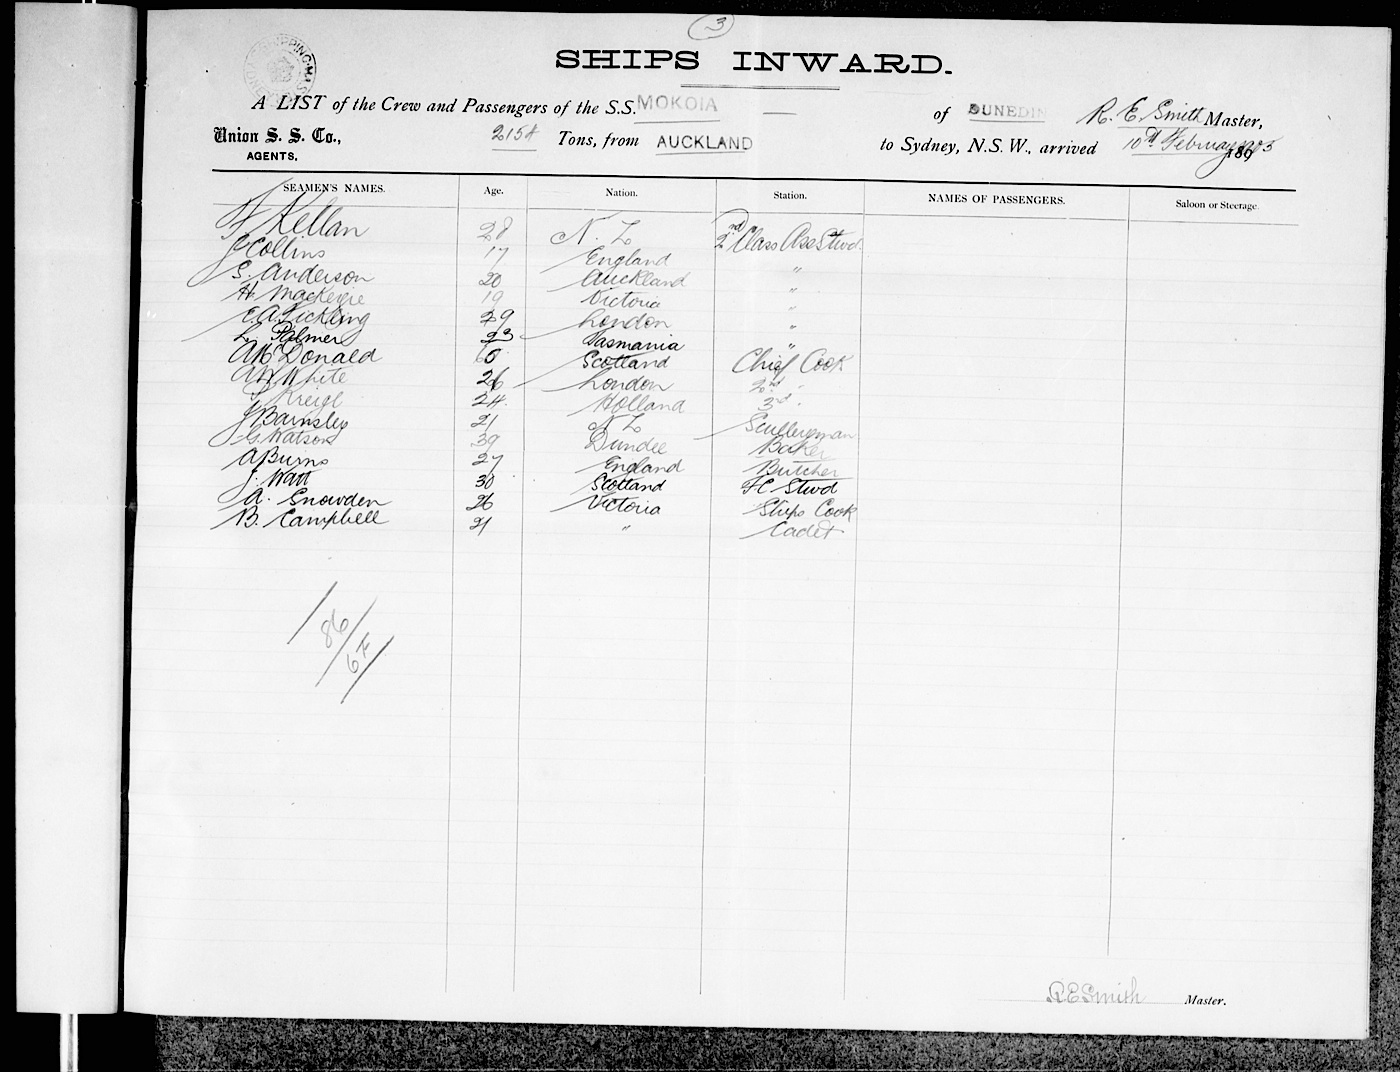 3
SHIPS INWARD.
A LIST of the Crew and Passengers of the S.S. MOKOIA — of DUNEDIN R. E. Smith Master,
Union S. S. Co., 2154 Tons, from AUCKLAND to Sydney, N.S.W., arrived 10th February 1905
AGENTS. 189
SEAMEN'S NAMES. Age. Nation. Station. NAMES OF PASSENGERS. Saloon or Steerage.
F Kellan 28 N. Z 2nd Class Ass Stwd.
J Collins 17 England "
S. Anderson 20 Auckland "
H. Mackenzie 19 Victoria "
E. A. Fickling 29 London "
L. Palmer 23 Tasmania "
A McDonald 60 Scotland Chief Cook
A H White 26 London 2nd "
J Kreigl 24 Holland 3rd "
J Barnsley 21 N Z Sculleryman
G. Watson 39 Dundee Baker
A Burns 27 England Butcher
J. Watt 30 Scotland F C Stwd
A. Snowden 26 Victoria Ships Cook
B. Campbell 21 " Cadet
86
6F
R E Smith Master.